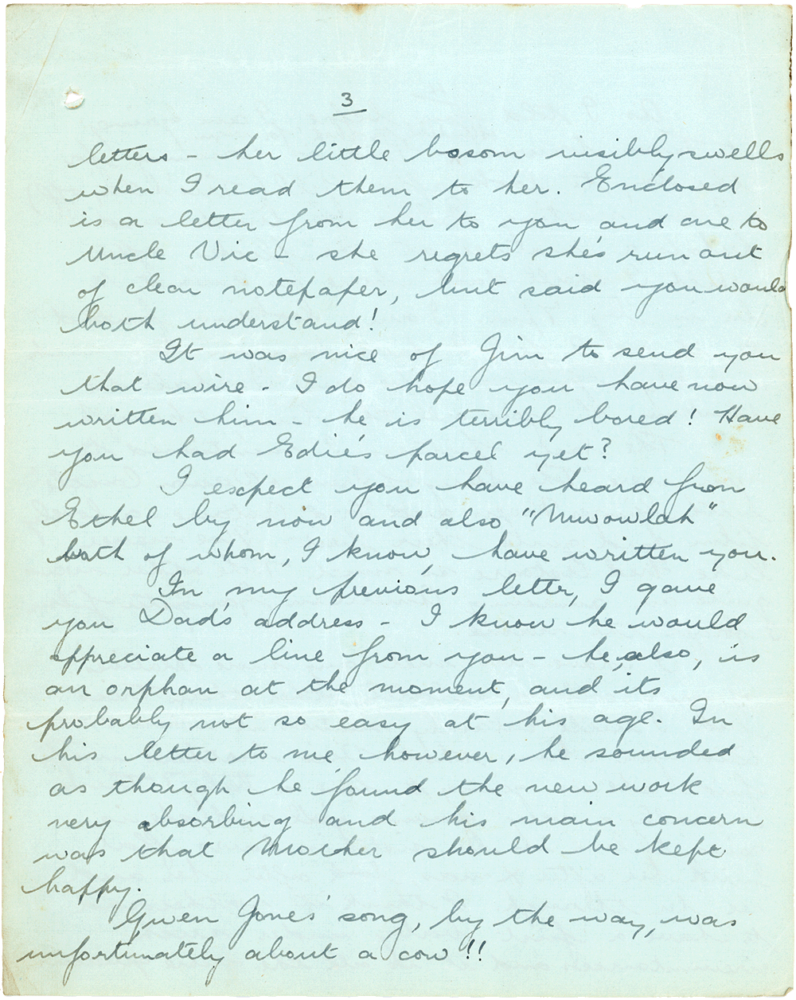 3
letters - her little bosom visibly swells
when I read them to her. Enclosed
is a letter from her to you and one to
Uncle Vic - she regrets she's run out
of clean notepaper, but said you would
both understand!
It was nice of Jim to send you
that wire - I do hope you have now
written him - he is terribly bored! Have
you had Edie's parcel yet?
I expect you have heard from
Ethel by now and also "Mwowlah"
both of whom, I know, have written you.
In my previous letter, I gave
you Dad's address - I know he would
appreciate a line from you - he, also, is
an orphan at the moment, and its
probably not so easy at his age. In
his letter to me, however, he sounded
as though he found the new work
very absorbing and his main concern
was that Mother should be kept
happy.
Gwen Jones' song, by the way, was
unfortunately about a cow!!